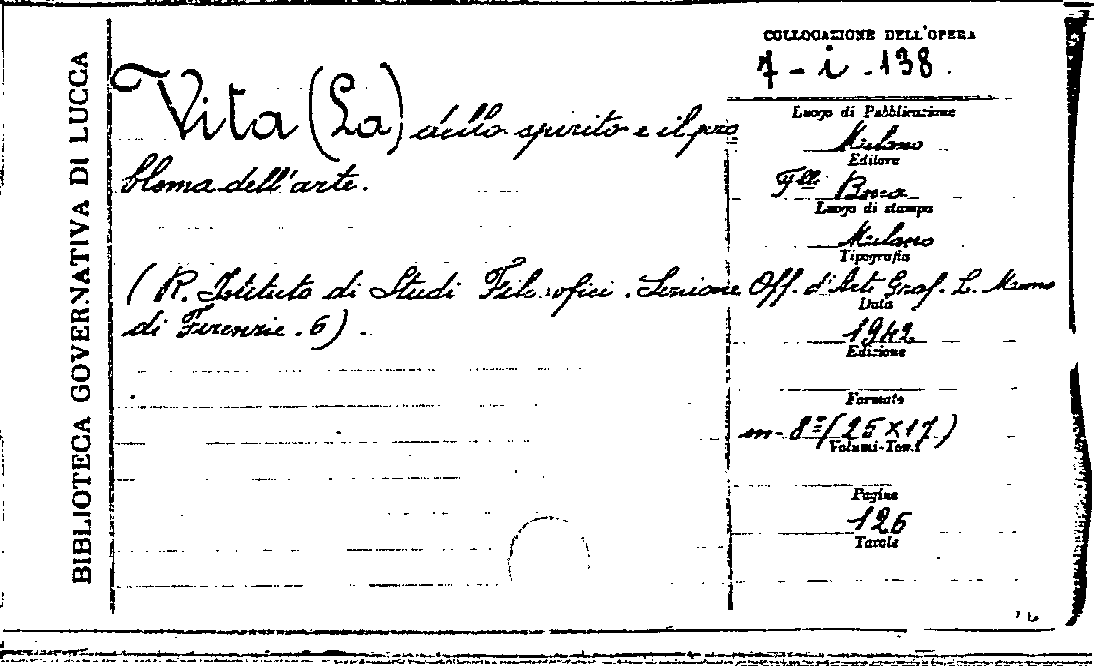 BIBLIOTECA GOVERNATIVA DI LUCCA
Vita (La) dello spirito e il pro
blema dell'arte.
( R. Istituto di Studi Filosofici. Sezione
di Firenze. 6) .
COLLOCAZIONE DELL'OPERA
7 - i - 138.
Luogo di Pubblicazione
Milano
Editore
F.lli Bocca
Luogo di stampa
Milano
Tipografia
Off. d'Art. Graf. L.
Data
1942
Edizione
Formato
in-8º (25 x 17)
Volumi-Tomi
Pagine
126
Tavole